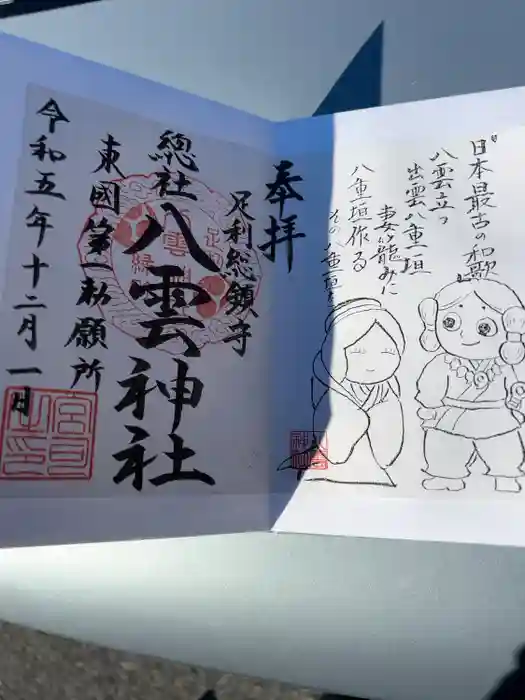 日本最古の和歌
八雲立つ
出雲八重垣
妻籠みに
八重垣作る
その八重垣を
奉拝
足利総鎮守
總社
八雲神社
東國第一勅願所
令和五年十二月一日